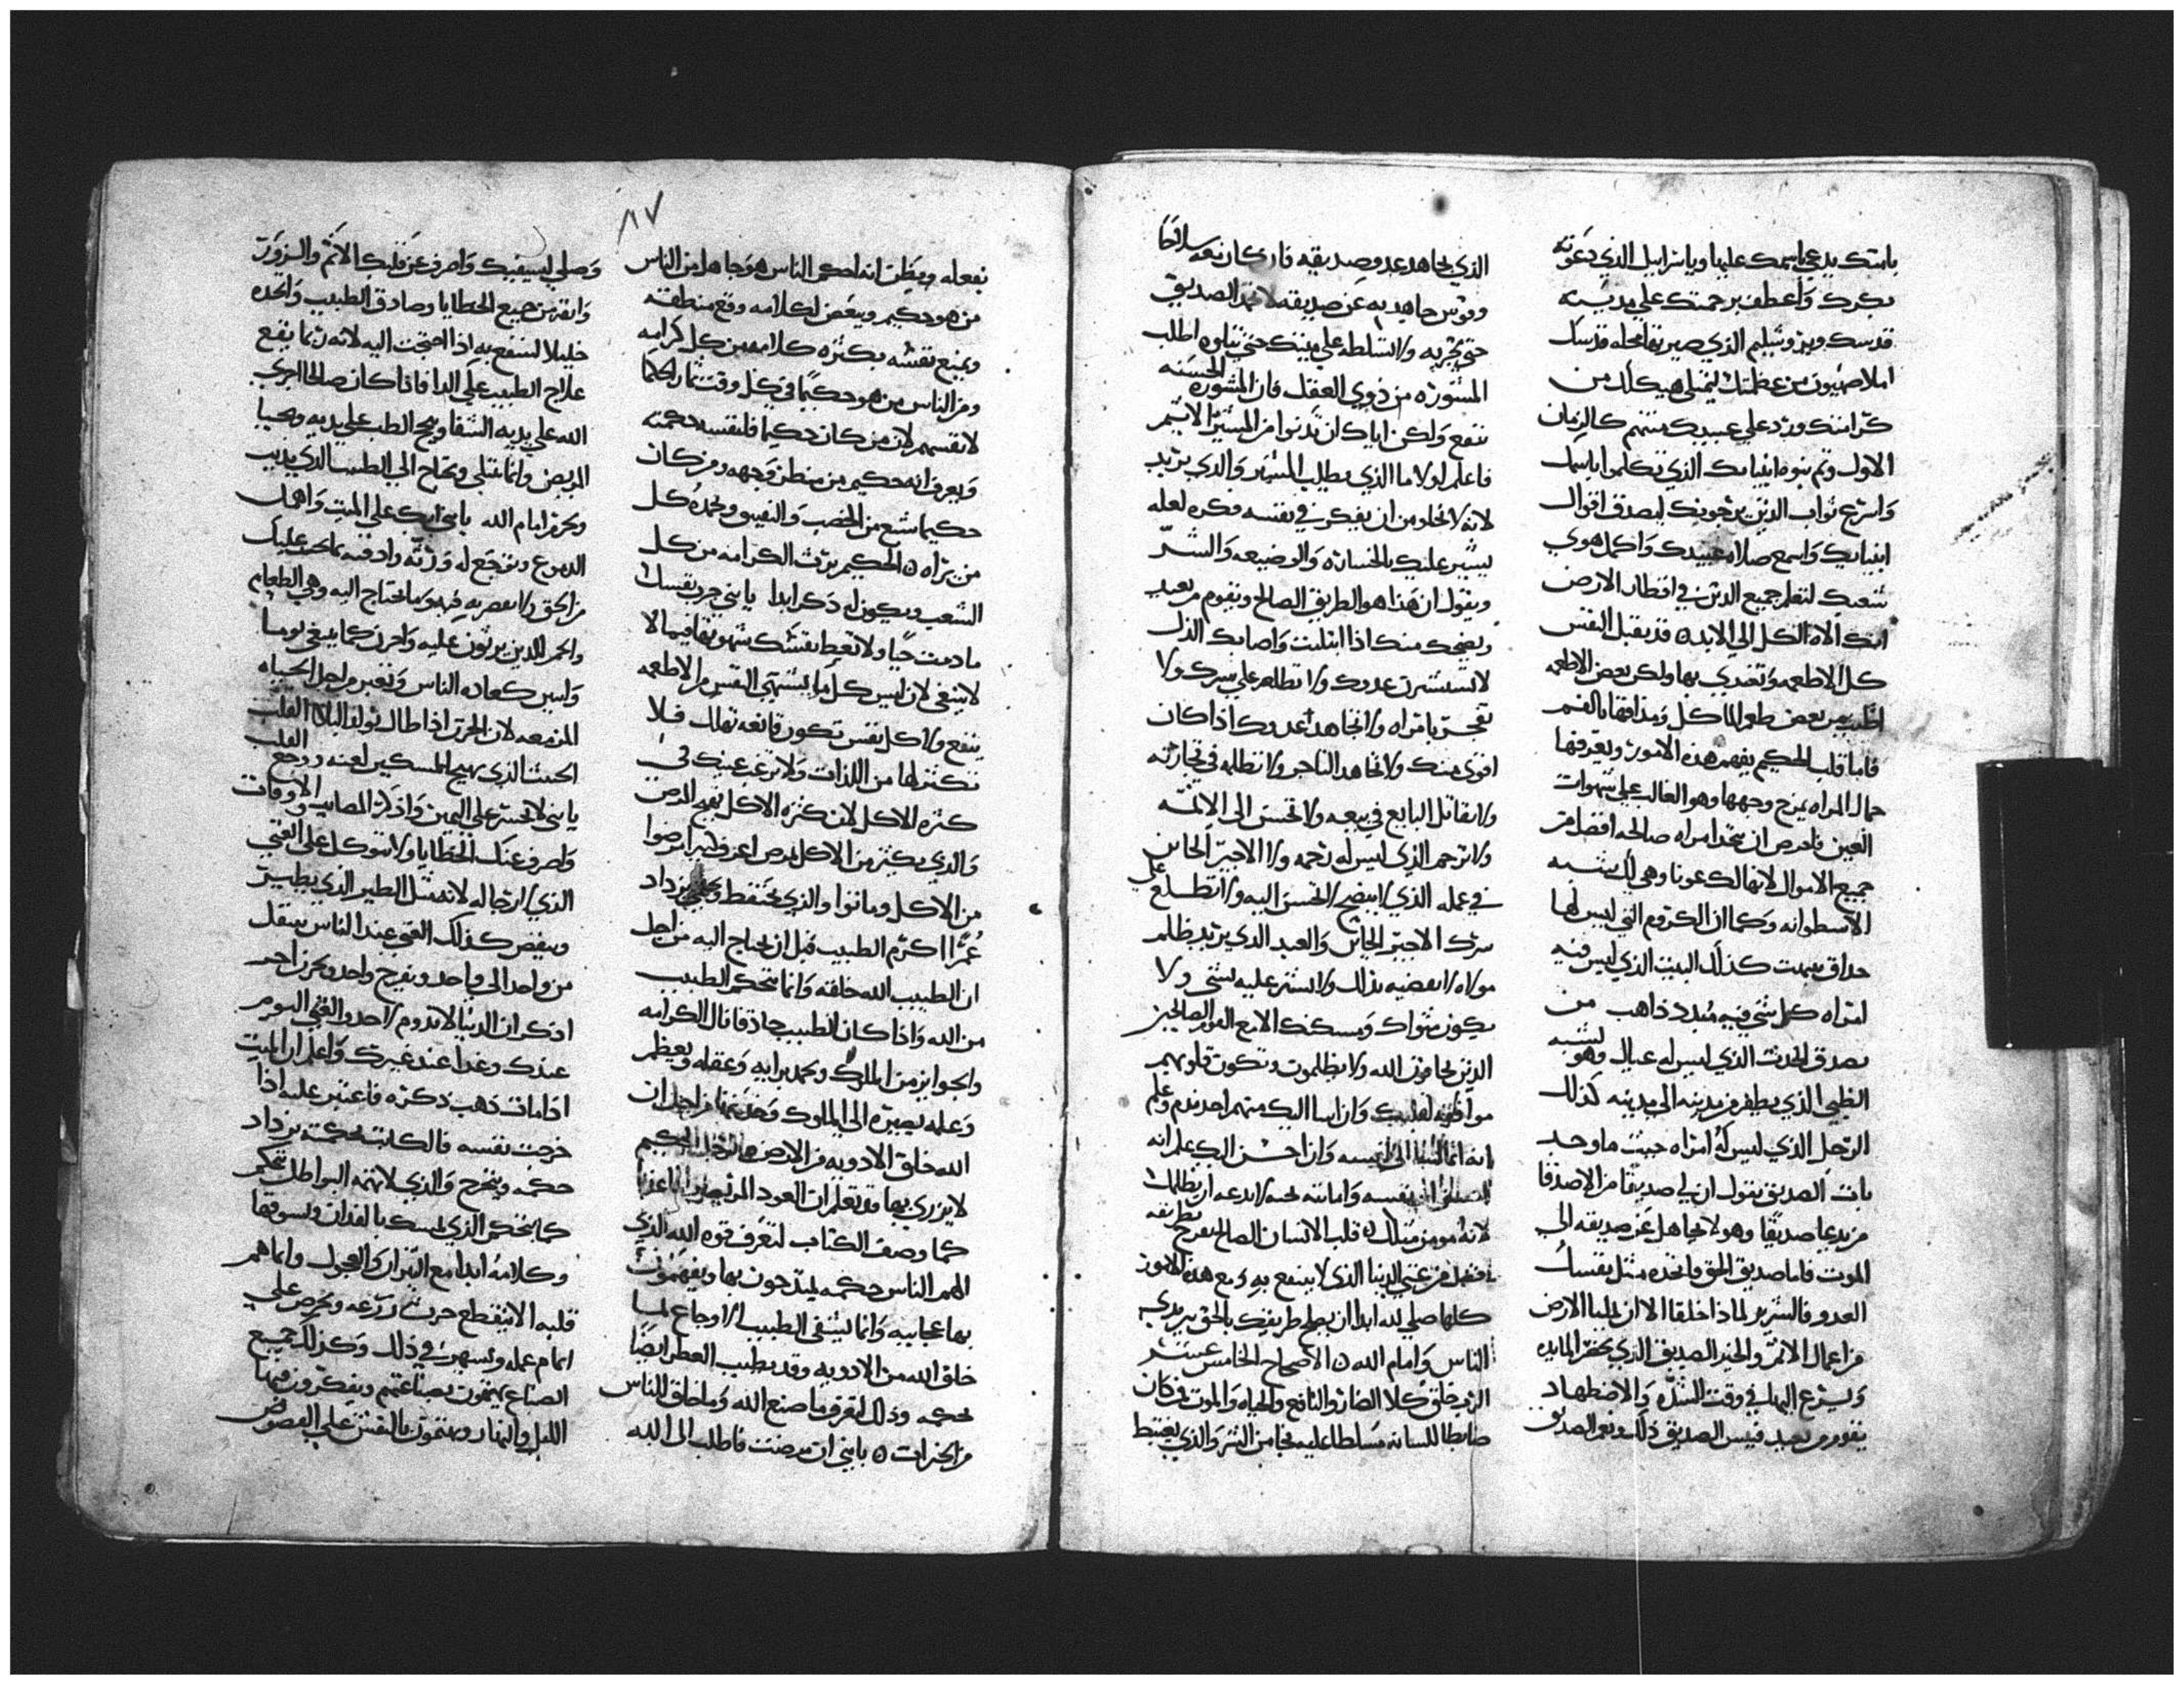 بامتك يدعي باسمك عليها وباسراييل الذي دعوته
بكرك واعطف برحمتك علي مدينة
قدسك ويروشليم الذي صيرتها محله قدسك
املا صهيون من عظمتك ليمتلي هيكلك من
كرامتك ورد علي عبيدك منهم كالزمان
الاول وتم نبوه انبيايك الذي تكلموا باسمك
واسرع ثواب الذين يرجونك ليصدق اقوال
انبيايك واسمع صلاه عبيدك واكمل هوي
شعبك لتعلم جميع الذين في اقطار الارض
انك الاه الكل الي الابد ٥ قد يقبل النفس
كل الاطعمه وتغتدي بها ولكن بعض الاطعمه
اطيب من بعض طعم الماكل ومذاقتها بالفم
فاما قلب الحكيم يفهم هذه الامور ويعرفها
جمال المراه يفرح وجهها وهو الغالب علي شهوات
العين فاحرص ان تتخذ امراه صالحه افضل من
جميع الاموال لانها لك عونا وهي لك شبه
الاسطوانه وكما ان الكروم التي ليس لها
حداق ينهب كذلك البيت الذي ليس فيه
امراه كل شي فيه مبدد ذاهب من
يصدق الحدث الذي ليس له عيال وهو يشبه
الظبي الذي يطفر من مدينه الي مدينه كذلك
الرجل الذي ليس له امراه حيث ما وجد
بات الصديق يقول ان لي صديقا من الاصدقا
من يدعا صديقا وهو لا يجاهل عن صديقه الي
الموت فاما صديق الحق فاتخده مثل نفسك
العدو والشرير لماذا خلقا الا ان يمليا الارض
من اعمال الاثم والخبز الصديق الذي يحضر المايده
ويسرع اليها في وقت الشده والاضطهاد
يقوم من بعيد فبيس الصديق ذلك ونعم الصديق
الذي يجاهد عدو صديقه فان كان معه سلاحا
وقوس جاهد به عن صديقه لا تحمد الصديق
حتي تجربه ولا تسلطه علي بيتك حتي تبلوه اطلب
المشوره من ذوي العقل فان المشوره الحسنه
تنفع ولكن اياك ان تدنوا من المشير الاثيم
فاعلم اولا ما الذي يطلب المشير والذي يريد
لانه لا يخلو من ان يفكر في نفسه فكره لعله
يشير عليك بالخساره والوضيعه والشر
ويقول ان هذا هو الطريق الصالح ويقوم من بعيد
ويضحك منك اذا ابتليت واصابك الذل
لا تستشير عدوك ولا تطلعه علي سرك ولا
تفجر بامراه ولا تجاهد عدوك اذا كان
اقوي منك ولا تجاهد التاجر ولا تظلمه في تجارته
ولا تقاتل البايع في بيعه ولا تحسن الي الاثمه
ولا ترحم الذي ليس له رحمه ولا الاجير الخاين
في عمله الذي لا ينصح لا تحسن اليه ولا تطلع علي
سرك الاجير الخاين والعبد الذي يريد يظلم
مولاه لا تفضيه بذلك ولا تستر عليه بشي ولا
يكون مثواك ومسكنك الا مع القوم الصالحين
الذين يخافون الله ولا يظلمون وتكون قلوبهم
موافقه لقلبك وان اسا اليك منهم احد ندم وعلم
انه انما اسا الي نفسه وان احسن اليك علم انه
نفسه وامانته لحسه لا تدعه ان يظلمك
لانه مومن مثلك ٥ قلب الانسان الصالح يفرح بطريقه
افضل من غني الدنيا الذي لا ينتفع به ومع هذه الامور
كلها صلي لله ابدا ان يصلح طريقك بالحق بين يدي
الناس وامام الله ٥ الاصحاح الخامس عشر
الرب خلق كلا الضار والنافع والحياه والموت فمن كان
ضابطا للسانه مسلطا عليه نجا من الشر والذي يغتبط
بفعله ويظن انه احكم الناس هو جاهل من الناس
من هو حكيم وببعض لكلامه وقع منطقه
ويمنع نفسه بكثره كلامه من كل كرامه
ومن الناس من هو حكيما في كل وقت ثمار الحكما
لانفسهم لان من كان حكيما فلنفسه حكمته
ويعرف انه حكيم من منطق وجهه ومن كان
حكيما شبع من الخصب والنفيس ويحمده كل
من يراه ٥ الحكيم يرث الكرامه من كل
الشعب ويكون له ذكر ابدا يا بني جرب نفسك
ما دمت حيا ولا تعيط نفسك شهوتها فيما لا
لا ينبغي لان ليس كل ما تشتهي النفس من الاطعمه
ينفع ولا كل نفس تكون قانعه تهلك فلا
تكثر لها من اللذات ولا ترغب عينك في
كثره الاكل لان كثره الاكل تهيج المرض
والذي يكثر من الاكل يمرض اعرف كثيرا مرضوا
من الاكل وماتوا والذي يحتفظ ويحمي يزداد
عمرا اكرم الطبيب قبل ان يحتاج اليه من اجل
ان الطبيب الله خلقه وانما تحكم الطبيب
من الله واذا كان الطبيب حاذقا نال الكرامه
والجوايز من الملوك ويحمد برايه وعقله ويعظم
وعلمه يصيره الي الملوك من اجل ان
الله خلق الادويه من الارض والرجل الحكيم
لا يزري بها وقد تعلم ان العود المر
كما وصف الكتاب لتعرف قوه الله الذي
الهم الناس حكمه ليمتدحون بها ويفهمون
بها عجايبه وانما يشفي الطبيب الاوجاع بما
خلق الله من الادويه وقد يطيب العطر ايضا
بحكمه وذلك لتعرف ما صنع الله وما خلق للناس
من الخيرات ٥ يا بني ان مرضت فاطلب الي الله
وصلي ليشفيك واصرف عن قلبك الاثم والزور
وانقه من جميع الخطايا وصادق الطبيب واتخده
خليلا لتنتفع به اذا احتجت اليه لانه ربما ينفع
علاج الطبيب علي الدا فاذا كان صالحا اجري
الله علي يديه الشفا ونجح الطب علي يديه ويحيا
المريض وانما يبتلي ويحتاج الي الطبيب الذي يذنب
ويجرم امام الله يا بني ابك علي الميت واهمل
الدموع وتوجع له ورثه وادفنه بما يجب عليك
من الحق ولا تقصر به فهو ما يحتاج اليه وهي الطعام
والخمر للذين يرثون عليه واحزن كما ينبغي يوما
واثنين كعاده الناس وتغير من اجل الحياه
المزمعه لان الحزن اذا طال تولد البلا القلب
الخبيث الذي يهيج المسكين لعنه ووجع القلب
يا بني لا تحسر علي اليمين واذكر المصايب والاوقات
واصرف عنك الخطايا ولا تتوكل علي الغني
الذي لا رجا له لانه مثل الطير الذي يطير
وينفض كذلك الغني عند الناس ينتقل
من واحد الي واحد ويفرح واحد ويحزن اخر
اذكر ان الدنيا لا تدوم لاحد والغني اليوم
عندك وغدا عند غيرك واعلم ان الميت
اذا مات ذهب ذكره فاعتبر عليه اذا
خرجت نفسه فالكاتب بحكمته يزداد
حكمه ويتخرج والذي لا تهمه البواطل يتحكم
كما يتحكم الذي يمسك بالفدان ويسوقها
وكلامه ابدا مع الثيران والعجول وانما هم
قلبه الا ينقطع حرث زرعه ويحرص علي
اتمام عمله ويسهر في ذلك وكذلك جميع
الصناع يهتمون بصناعتهم ويفكرون فيها
الليل والنهار ويهتمون بالنقش علي الفصوص